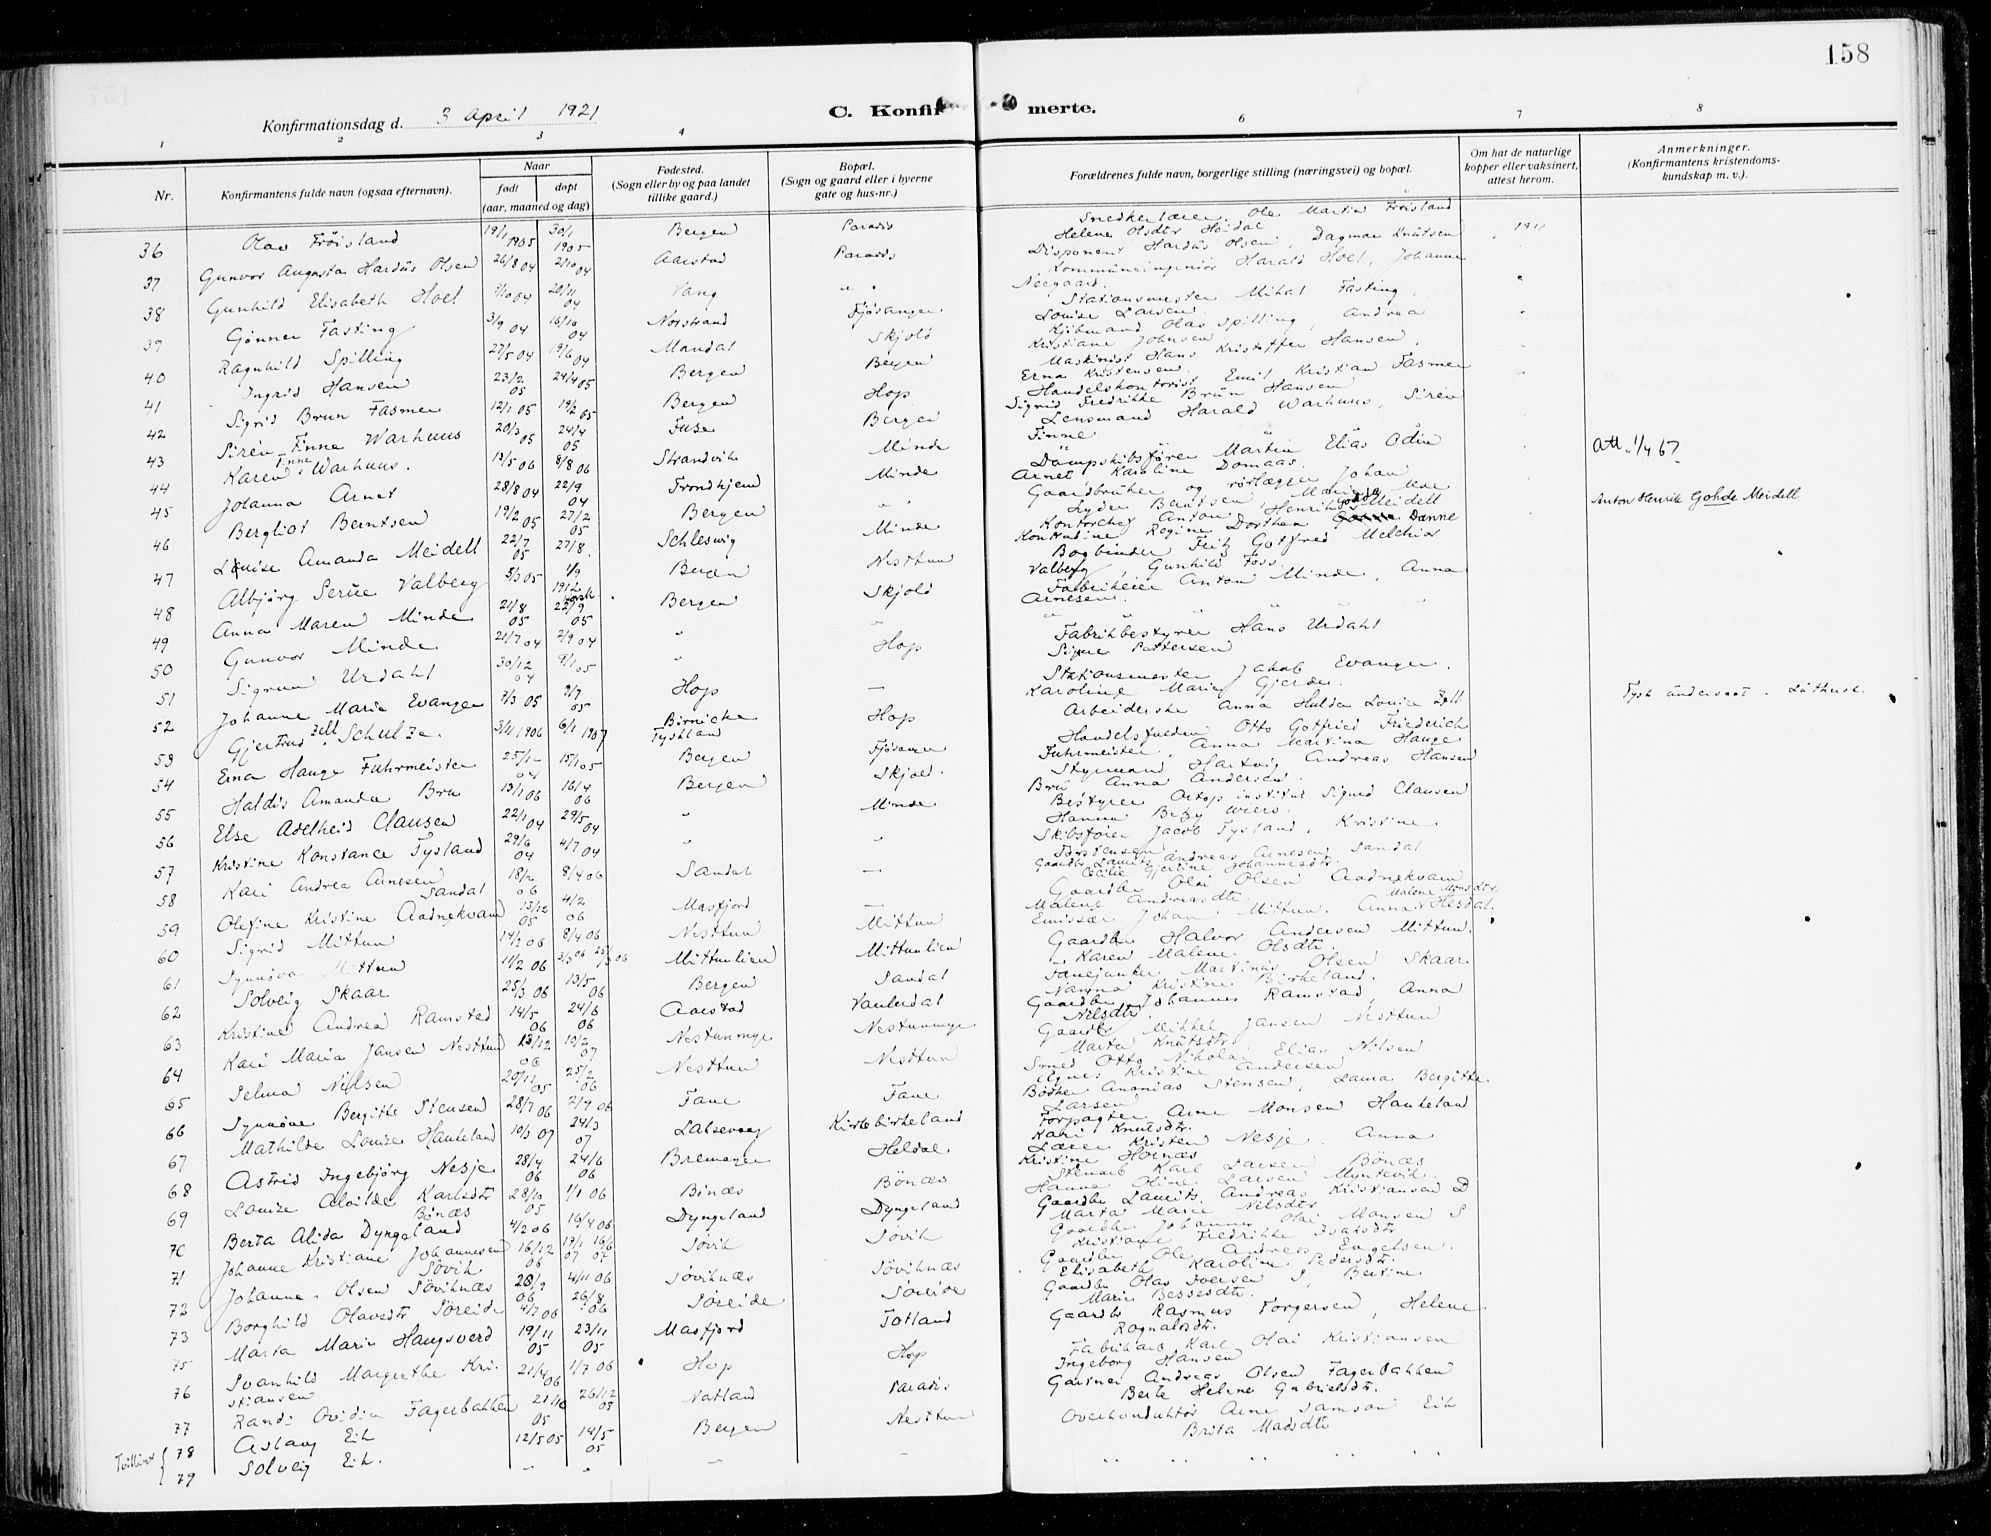 158
Konfirmationsdag d. 3 April 1921
C. Konfir merte.
1 2 3 4 6 7 8
Nr.
Konfirmantens fulde navn (ogsaa efternavn).
Naar
født døpt
(aar, maaned og dag)
Fødested.
(Sogn eller by og paa landet
tillike gaard.)
Bopæl.
(Sogn og gaard eller i byerne
gate og hus-nr.)
Forældrenes fulde navn, borgerlige stilling (næringsvei) og bopæl.
Om hat de naturlige
kopper eller vaksinert,
attest herom.
Anmerkninger.
(Konfirmantens kristendoms-
kundskap m. v.).
36 Olav Frøisland 19/1 1905 30/1 1905 Bergen Paradis Ole Martin Frøisland Helene Olsdtr Høidal
37 Gunvor Augusta Hardüs Olsen 26/8 04 2/10 04 Aarstad Paradis Disponent Hardüs Olsen, Dagmar Knütsen
38 Gunhild Elisabeth Hoel 7/10 04 20/11 04 Vang " " Kommüneingeniør Harald Hoel, Johanne
39 Gønner Fasting 3/9 04 16/10 04 Norstrand Fjøsanger Stationsmester Mihal Fasting, Louise Larsen
40 Ragnhild Spilling 27/5 04 19/6 04 Mandal Skjold Kjöbmand Olav Spilling, Andrea Kristiane Johnsen
41 Ingrid Hansen 23/2 05 24/4 05 Bergen Bergen Maskinist Hans Kristoffer Hansen, Erna Kristensen
42 Sigrid Brun Fasmer 12/1 05 19/2 05 Bergen Hop Handelskontorist Emil Kristian Fasmer Sigrid Fredrikke Brün Hansen
43 Siren Finne Warhuus 20/3 05 24/4 05 Fuse Bergen Lensmand Harald Warhuus, Siren Finne
44 Karen Finne Warhuus. 13/5 06 8/8 06 Strandvik Minde
45 Johanna Arnet 28/8 04 22/9 04 Trondhjem Minde Dampskibsfører Martin Elias Odin Arnet, Karoline Domaas. Att. 1/4 67.
46 Bergliot Berntsen 19/2 05 27/2 05 Bergen " Gaardbruker og rörlægger Johan Lyder Berntsen, Marie Moe
47 Louise Amanda Meidell 22/7 05 27/8 Schleswig Minde Kontorchef Anton Henrik Gohde Meidell Regine Dorthea Danne Anton Henrik Gohde Meidell
48 Albjørg Serüe Valberg 5/3 05 1/9 1912 Bergen Nesttun Bogbinder Fritz Gotfred Melchior Valberg, Gunhild Foss.
49 Anna Maren Minde 21/8 05 22/9 05 Bergen Skjold Fabrikeier Anton Minde, Anna Arnesen.
50 Gunvor Minde 21/7 04 2/9 04 " " " " " "
51 Sigrun Urdahl 30/12 04 9/1 05 " Hop Fabrikbestyrer Hans Urdahl Signe Pettersen
52 Johanne Marie Evanger 7/3 05 9/7 05 Hop — Stationsmester Jakob Evanger. Karoline Marie Gjerde.
53 Gjertrud Zell Schulze. 3/11 1906 6/1 1907 Tyskland Hop Arbeiderske Anna Hulda Louise Zell Tysk ündersaat. Lüthersk.
54 Erna Hauge Fuhrmeister 25/12 04 15/1 05 Bergen Fjøsanger Otto Gotfried Friederich Fuhrmeister, Anna Martina Hauge
55 Haldis Amanda Bru 13/1 06 16/4 06 Bergen Skjold. Styrmand Hartvig Andreas Hansen Brü Anna Andersen.
56 Else Adelheid Clausen 22/1 04 29/5 04 " Minde Bestyrer Ortop institut Sigurd Clausen Hanna Betzy Wiers
57 Kristine Konstance Tysland 29/6 04 4/7 04 " " Skibsfører Jacob Tysland, Kristine Torstensen
58 Kari Andrea Arnesen Sandal 18/2 06 8/4 06 Sandal — Gaardbr Laurits Andreas Arnesen Sandal Cecilie Gjertine Johannesdtr.
59 Olefine Kristine Aadnekvam 13/12 05 4/2 06 Masfjord — Gaardbr Olai Olsen Aadnekvam Malene Andreasdtr. Malene Monsdtr
60 Sigrid Mittun 14/2 06 8/4 06 Nesttun Mittun Emissær Johan Mittun. Anna Hesdal.
61 Synnøva Mittun 11/2 06 Mittunlien Mittunlien Gaardbr Halvor Andersen Mittun. Karen Malene Olsdtr.
62 Solveig Skaar 25/3 06 13/5 06 Bergen Sandal Fanejunker Martinus Olsen Skaar Nanna Kristine Birkeland.
63 Kristine Andrea Ramstad 14/5 06 24/6 06 Aarstad Gaardbr Johannes Ramstad, Anna Nilsdtr.
64 Kari Maria Jansen Nesttun 13/12 06 10/2 07 Nestunnege Nestunnege Gaardbr Mikkel Jansen Nesttun Marta Knütsdtr
65 Selma Nilsen 20/11 05 25/2 06 Nesttun Nesttun Smed Otto Nikolai Elias Nilsen Agnes Kristine Andersen
66 Synnøve Bergitte Stensen 28/7 06 2/9 06 Fane Fane Bødker Ananias Stensen, Laura Bergitte Larsen
67 Mathilde Louise Haukeland 10/3 07 24/3 07 Laksevaag Kirkebirkeland Forpagter Arne Monsen Haukeland Kari Knutsdtr.
68 Astrid Ingebjørg Nesje 28/4 06 24/6 06 Bremanger Heldal Lærer Kristen Nesje. Anna Kristine Hovnæs
69 Louise Alvilde Karlsdtr Bönæs 28/10 05 1/1 06 Bönæs Bönæs Stenarb Karl Larsen Bönæs Hanna Oline Larsen Myntevik
70 Berta Alida Dyngeland 4/2 06 16/4 06 Dyngeland Dyngeland Gaardbr Laurits Andreas Kristiansen D Marta Marie Nilsdtr
71 Johanne Kristiane Johannesen Søvik 16/12 06 Søvik Søvik Gaardbr Johannes Olai Monsen S Kristiane Fredrikke Isaksdtr
72 Johanne Olsen Sövihnæs 28/9 06 4/11 06 Søvihnæs Søvihnæs Gaardbr Ole Andreas Engelsen. Elisabeth Karoline Pedersdtr.
73 Borghild Olavsdtr Søreide 4/7 06 26/8 06 Søreide Søreide Gaardbr Olav Iversen S, Bertine Marie Bessesdtr.
Marta Marie Haugsverd 19/11 05 23/11 05 Masfjord Totland Gaardbr Rasmus Torgersen, Helene Rognaldsdtr.
75 Svanhild Margrethe Kristiansen 21/4 06 1/7 06 Hop Hop Fabrikarb Karl Olai Kristiansen Ingeborg Hansen
76 Randi Ovidia Fagerbakken 21/10 05 26/12 05 Natland Paradis Gartner Andreas Olsen Fagerbakken Berte Helene Gabrielsdtr.
77
Tvillinger 78 Aslaug Eik 12/5 05 14/5 05 Bergen Nesttun Overkonduktör Arne Samson Eik Brita Madsdtr
79 Solveig Eik. " " " "